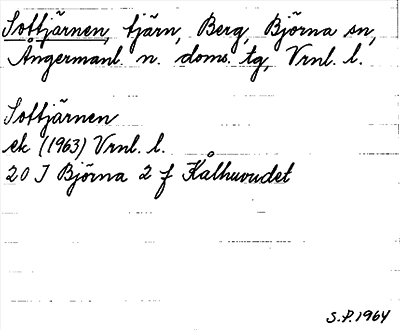 Sottjärnen, tjärn, Berg, Björna sn,
Ångermanl. n. doms. tg, Vrnl. l.
Sottjärnen
ek (1963) Vrnl. l.
20 I Björna 2 f Kålhuvudet
S.P. 1964